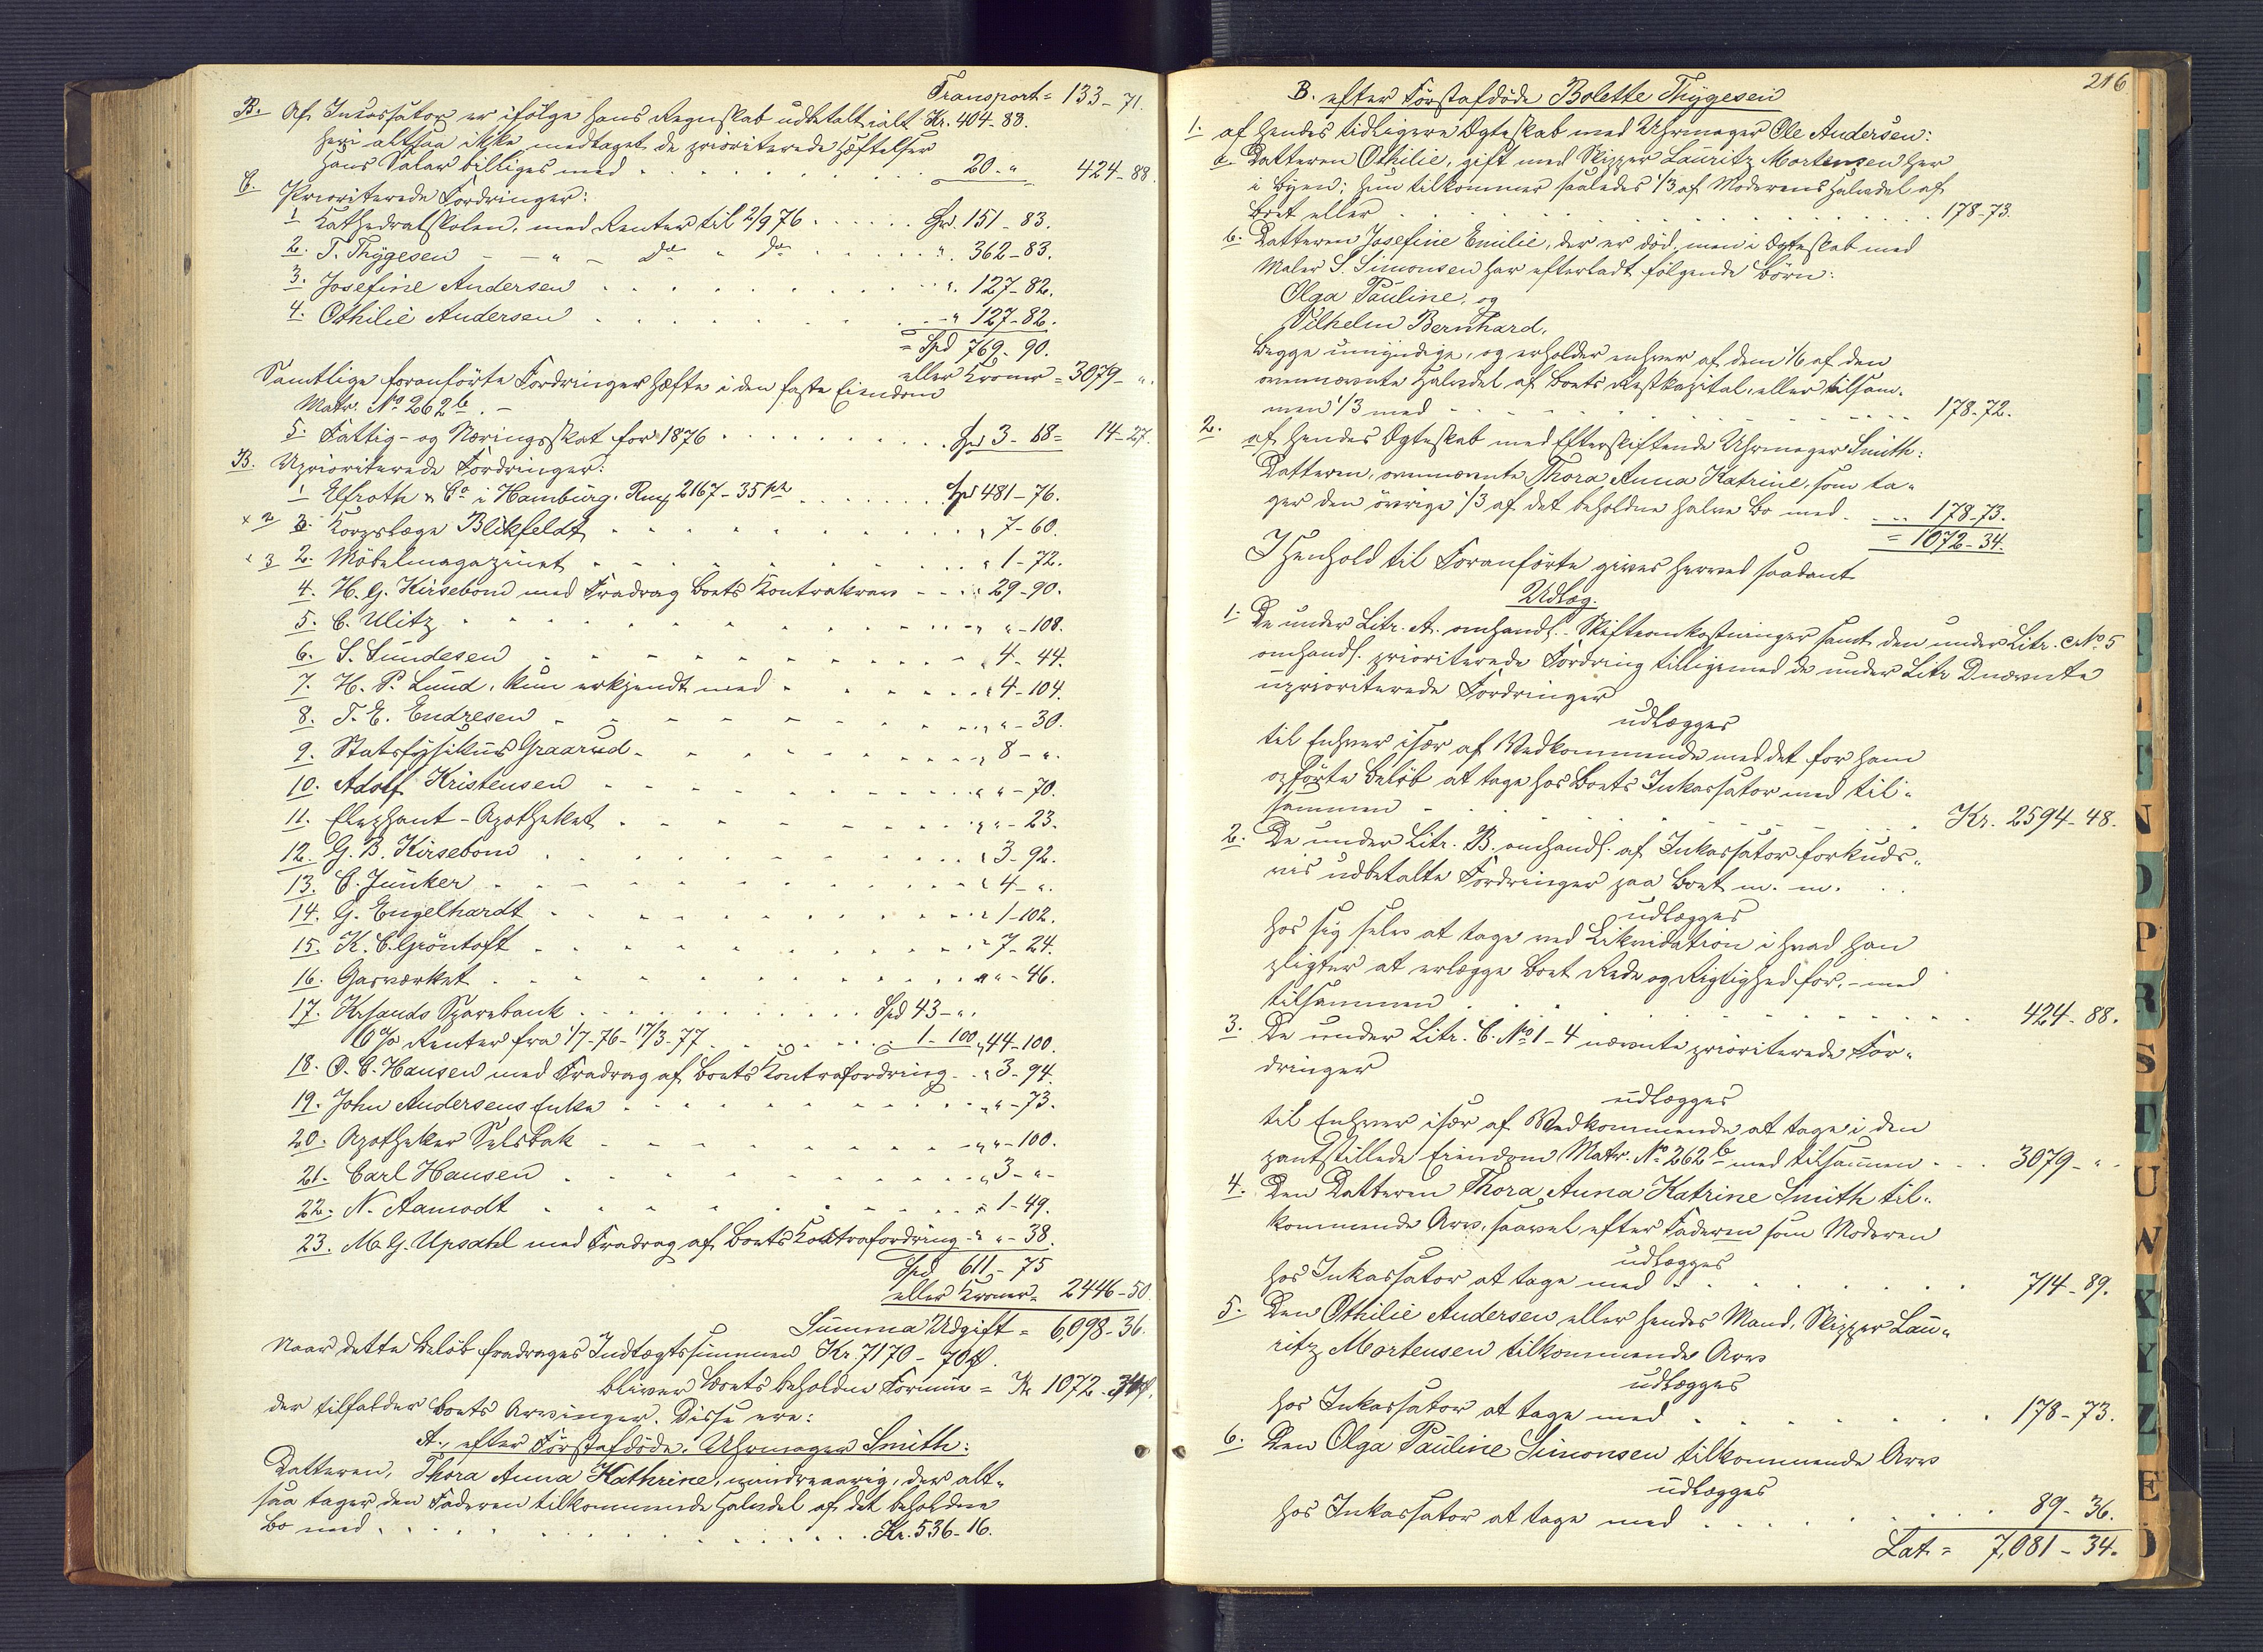 Transport = 133-71.
B. Af Incassator er ifølge hans Regnskab udbetalt ialt Kr. 404-88.
heri altsaa ikke medtaget de prioriterede Hæftelser
hans Salær billiges med . . . 20 - " 424-88.
C. Prioriterede Fordringer:
1 Kathedralskolen, med Renter til 2/9 76 . . . Spd. 151-83.
2. T. Thygesen - - " - Do " Do . . . " 362-83.
3. Josefine Andersen . . . " 127-82.
4. Othilie Andersen . . . " 127-82.
= Spd 769-90.
eller Kroner = 3079- ".
Samtlige foranførte Fordringer hæfte i den faste Eiendom
Matr. No 262b. -
5. Fattig- og Næringsskat for 1876 . . . Spd 3-68= 14-27.
B. Uprioriterede Fordringer:
1 Elfroth & Co i Hamburg, Rm 2167-35 . . . Spd 481-76.
x 2 3. Korpslæge Blikfeldt . . . " 7-60.
x 3 2. Möbelmagazinet . . . " 1-72.
4. H. G. Kirsebom med Fradrag Boets Kontrakrav . . . " 29-90.
5. C. Ulitz . . . " " -108.
6. S. Sundesen . . . " 4-44.
7. H. P. Lund, kun erkjendt med . . . " 4-104.
8. T. E. Endresen . . . " " -30.
9. Statsfysikus Graarud . . . " 8- ".
10. Adolf Kristensen . . . " " -70.
11. Elephant-Apotheket . . . " " -23.
12. G. B. Kirsebom . . . " 3-92.
13. C. Junker . . . " 4- ".
14. G. Engelhardt . . . " 1-102.
15. K. C. Gröntoft . . . " 7-24.
16. Gasværket . . . " " -46.
17. Krsands Sparebank . . . Spd 43- ".
6% Renter fra 1/7-76-17/3-77 . . . 1-100 " 44-100.
18. O. C. Hansen med Fradrag af Boets Kontrafordring . . " 3-94.
19. John Andersens Enke . . . " " -73.
20. Apotheker Selsbak . . . " " -100.
21. Carl Hansen . . . " 3- " -
22. N. Aamodt . . . " 1-49.
23. M. G. Upsahl med Fradrag af Boets Kontrafordring - " " -38.
Spd 611-75
eller Kroner = 2446-50.
Summa Udgift = 6,098-36.
Naar dette Beløb fradrages Indtægtssummen Kr. 7170-70.
bliver Boets beholdne Formue = Kr 1072-34.
der tilfalder Boets Arvinger. Disse ere:
A., efter Førstafdøde, Uhrmager Smith:
Datteren, Thora Anna Kathrine, mindreaarig, der alt-
saa tager den Faderen tilkommende Halvdel af det beholdne
Bo med . . . Kr. 536-16.
216
B. efter Førstafdøde Bolette Thygesen
1. af hendes tidligere Ægteskab med Uhrmager Ole Andersen:
a. Datteren Othilie, gift med Skipper Lauritz Mortensen her
i Byen; hun tilkommer saaledes 1/3 af Moderens Halvdel af
Boet eller . . . 178-73.
b. Datteren Josefine Emilie, der er død, men i Ægteskab med
Maler S. Simonsen har efterladt følgende Børn:
Olga Pauline, og
Vilhelm Bernhard,
begge umyndige, og erholder enhver af dem 1/6 af den
ovennævnte Halvdel af Boets Restkapital, eller tilsam-
men 1/3 med . . . 178-72.
2. af hendes Ægteskab med Efterskiftende Uhrmager Smith:
Datteren, ovennævnte Thora Anna Katrine, som ta-
ger den øvrige 1/3 af det beholdne halve Bo med . . . 178-73.
= 1072-34.
I Henhold til Foranførte gives herved saadant
Udlæg.
1. De under Litr. A. omhandl. Skifteomkostninger samt den under Litr. C No 5
omhandl. prioriterede Fordring tilligemed de under Litr D nævnte
uprioriterede Fordringer
udlægges
til Enhver især af Vedkommende med det for ham
opførte Beløb at tage hos Boets Inkassator med til-
sammen . . . Kr. 2594-48.
2. De under Litr. B. omhandl. af Inkassator forskuds-
vis udbetalte Fordringer paa Boet m. m. . .
udlægges
hos sig selv at tage ved Likvidation i hvad han
pligter at erlægge Boet Rede og Rigtighed for, - med
tilsammen . . . 424-88.
3. De under Litr. C. No 1-4 nævnte prioriterede For-
dringer
udlægges
til Enhver især af Vedkommende at tage i den
pantstillede Eiendom Matr. No 262b med tilsammen . . . 3079- " -
4. Den Datteren Thora Anna Katrine Smith til-
kommende Arv, saavel efter Faderen som Moderen
udlægges
hos Inkassator at tage med . . . 714-89.
5. Den Othilie Andersen eller hendes Mand, Skipper Lau-
ritz Mortensen tilkommende Arv
udlægges
hos Inkassator at tage med . . . 178-73.
6. Den Olga Pauline Simonsen tilkommende Arv
udlægges
hos Inkassator at tage med . . . 89-36.
Lat = 7,081-34.
N
O
P
R
S
T
U
W
X
Y
Z
Æ
Ø